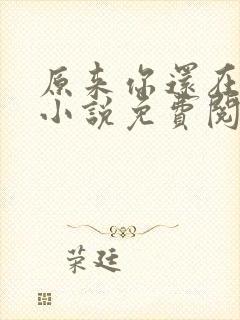 原来你還在
小説免費閱
荣廷